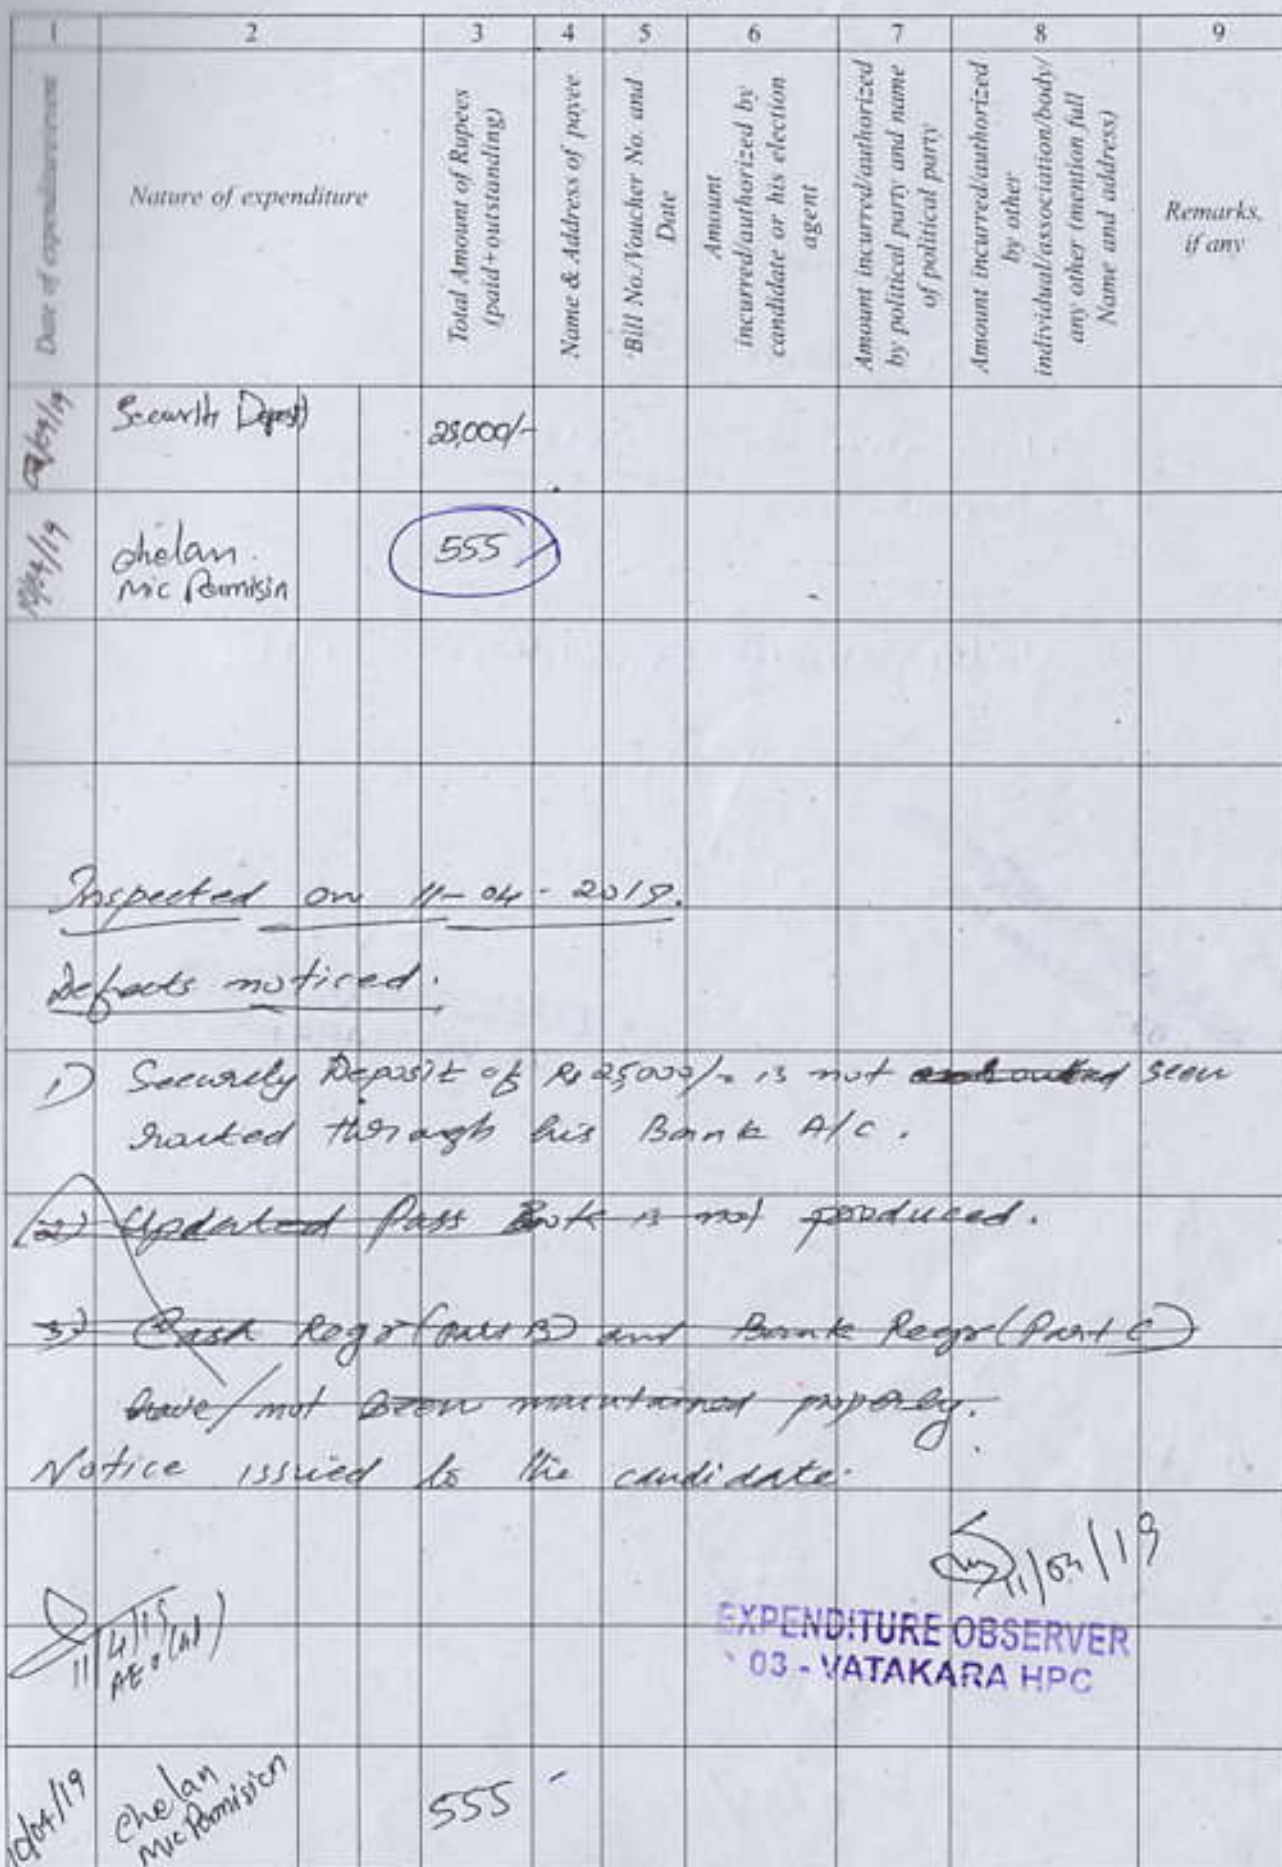 1 2 3 4 5 6 7 8 9
Date of expenditure
Nature of expenditure
Total Amount of Rupees
(paid+outstanding)
Name & Address of payee
Bill No./Voucher No. and
Date
Amount
incurred/authorized by
candidate or his election
agent
Amount incurred/authorized
by political party and name
of political party
Amount incurred/authorized
by other
individual/association/body/
any other (mention full
Name and address)
Remarks,
if any
/04/19 Securlt Deposit 25,000/-
10/04/19 chelan. 555
Mic Pormisin
Inspected on 11-04-2019.
Defects noticed.
1) Security Deposit of Rs 25,000/- is not seen
routed through his Bank A/C.
(2) Updated Pass Book is not produced.
3) Cash Regr (Part B) and Bank Regr (Part C)
have/not been maintained properly.
Notice issued to the candidate.
11/04/19
11/4/19
AEO
EXPENDITURE OBSERVER
03 - VATAKARA HPC
10/04/19 chelan 555 -
Mic Pormision